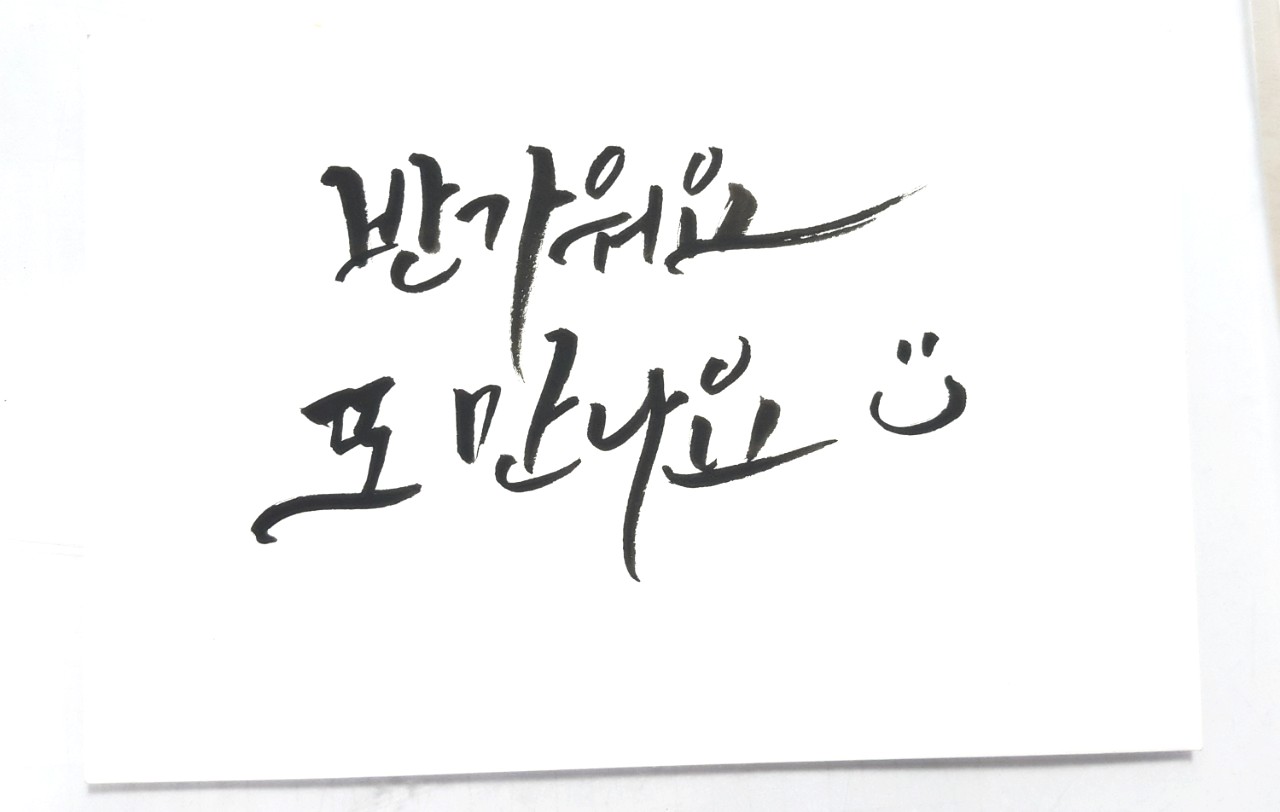 반가워요
또 만나요 :)